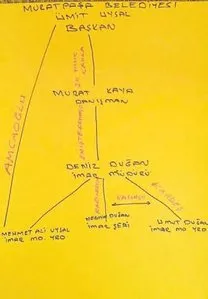 MURATPAŞA BELEDİYESİ
ÜMİT UYSAL
BAŞKAN
AMCAOĞLU
MURAT KAYA
DANIŞMAN
DENİZ DUĞAN
İMAR MÜDÜRÜ
MEHMET ALİ UYSAL
İMAR MD. YRD
DUĞAN
İMAR ŞEFİ
UMUT DUĞAN
İMAR MD. YRD